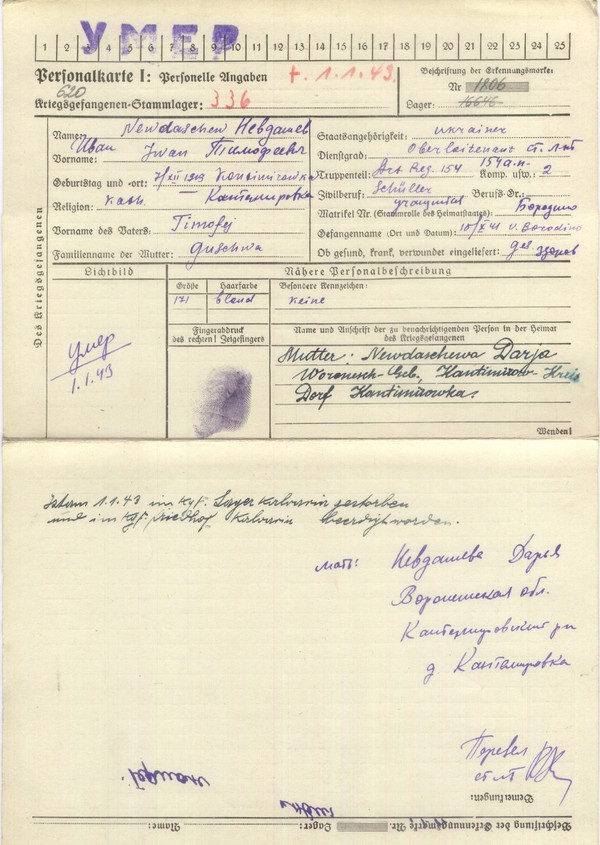 УМЕР
1 2 3 4 5 6 7 8 9 10 11 12 13 14 15 16 17 18 19 20 21 22 23 24 25
Personalkarte I: Personelle Angaben
† . 1.1.43.
Beschriftung der Erkennungsmarke
620
Nr 1806
Kriegsgefangenen-Stammlager: 336
Lager:
Des Kriegsgefangenen
Name: Newdaschew Невдашев
Иван
Vorname: Iwan Тимофеевич
Geburtstag und -ort: 7/XII 1919 Kantimirowka
Кантемировка
Religion: kath.
Vorname des Vaters: Timofej
Familienname der Mutter: Guschwa
Staatsangehörigkeit: ukrainer
Dienstgrad: Oberleitenant ст. лт
Truppenteil: Art Reg. 154 154 а.п. Komp. usw.: 2
Zivilberuf: Schüller Berufs-Gr.:
учащийся
Matrikel Nr. (Stammrolle des Heimatstaates): Бородино
Gefangenname (Ort und Datum): 10/X 41 v. Borodino
Ob gesund, krank, verwundet eingeliefert: ges здоров
Lichtbild
умер
1.1.43
Größe Haarfarbe
171 blond
Fingerabdruck
des rechten! Zeigefingers
Nähere Personalbeschreibung
Besondere Kennzeichen:
keine
Name und Anschrift der zu benachrichtigenden Person in der Heimat
des Kriegsgefangenen
Mutter: Newdaschewa Darja
Woronesch-Geb., Kantimirow-Kreis
Dorf Kantimirowka.
Wenden!
Ist am 1.1.43 im Kgf. Lager Kalvarin gestorben
und im Kgf. Friedhof Kalvarin beerdigt worden.
мать: Невдашева Дарья
Воронешская обл.
Кантемировский рн
д. Кантемировка
Перевел
ст. лт
Bemerkungen:
Герман
Beschriftung der Erkennungsmarke Nr. Lager: Name: